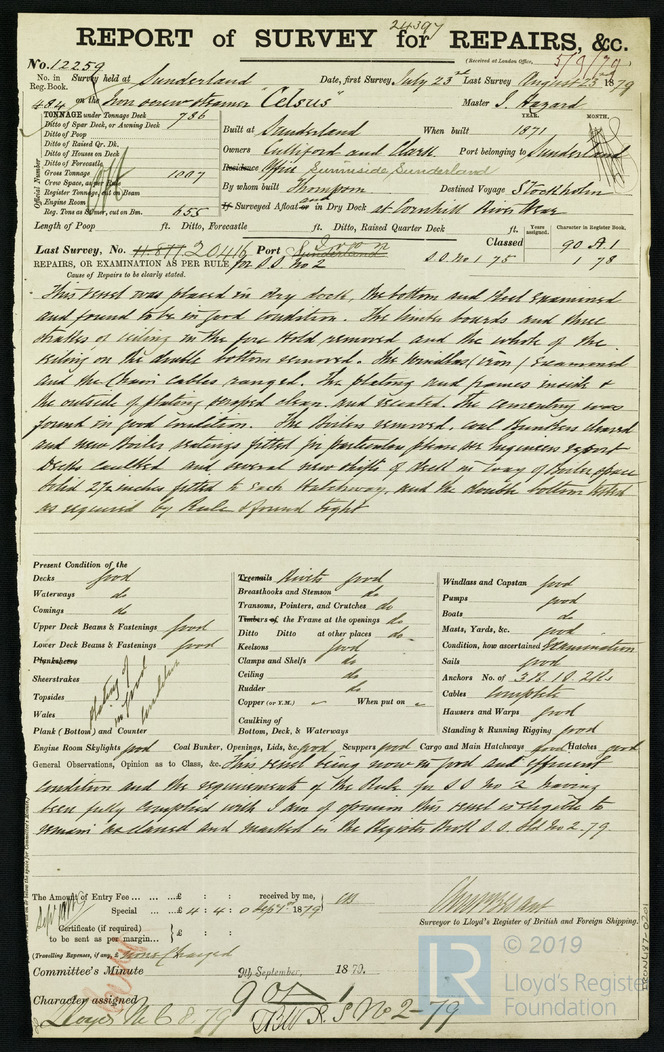 24397
REPORT of SURVEY for REPAIRS, &c.
(Received at London Office, 5/9/79)
No. 12259
No. in Reg. Book. Survey held at Sunderland Date, first Survey, July 23rd Last Survey August 23rd 1879
484 on the Iron screw steamer "Celsus" Master J. Hazard
TONNAGE under Tonnage Deck 786
Ditto of Spar Deck, or Awning Deck
Ditto of Poop
Ditto of Raised Qr. Dk.
Ditto of Houses on Deck
Ditto of Forecastle
Gross Tonnage 1007
Crew Space, as per Rule
Register Tonnage, cut on Beam
Engine Room
Reg. Tons as Steamer, cut on Bm. 655
Official Number
YEAR. MONTH.
Built at Sunderland When built 1871
Owners Culliford and Clark Port belonging to Sunderland
Residence Office Sunniside Sunderland
By whom built Thompson Destined Voyage Stockholm
If Surveyed Afloat or and in Dry Dock at Cornhill River Wear
Length of Poop ft. Ditto, Forecastle ft. Ditto, Raised Quarter Deck ft.
Years assigned. Character in Register Book.
Last Survey, No. 20416 Port Sunderland Classed 90 A.1
REPAIRS, OR EXAMINATION AS PER RULE for S.S. No 2 S.S. No 1 75 1 78
Cause of Repairs to be clearly stated.
This vessel was placed in dry dock, the bottom and keel examined
and found to be in good condition. The limber boards and three
strakes of ceiling in the fore hold removed and the whole of the
ceiling on the double bottom removed. The Windlass (iron) Examined
and the Chain Cables ranged. The plating and frames inside &
the outside of plating scraped clean and recoated. The cementing was
found in good condition. The Boilers removed, coal Bunkers cleared
and new Boiler seatings fitted for particulars please see Engineers report
Decks caulked and several new strips of deck in way of Boiler space
Solid 2½ inches fitted to each Hatchway, and the double bottom tested
as required by Rule & found tight
Present Condition of the
Decks good
Waterways do
Comings do
Upper Deck Beams & Fastenings good
Lower Deck Beams & Fastenings good
Planksheers
Sheerstrakes
Topsides
Wales
Plank (Bottom) and Counter
Plating of
in good
condition
Treenails Rivets good
Breasthooks and Stemson do
Transoms, Pointers, and Crutches do
Timbers of the Frame at the openings do
Ditto Ditto at other places do
Keelsons good
Clamps and Shelfs do
Ceiling do
Rudder do
Copper (or Y.M.) When put on
Caulking of
Bottom, Deck, & Waterways
Windlass and Capstan good
Pumps good
Boats do
Masts, Yards, &c. good
Condition, how ascertained Examination
Sails good
Anchors No. of 3 B. 1 S. 2 Ks
Cables Complete
Hawsers and Warps good
Standing & Running Rigging good
Engine Room Skylights good Coal Bunker, Openings, Lids, &c. good Scuppers good Cargo and Main Hatchways good Hatches good
General Observations, Opinion as to Class, &c. This vessel being now in good and efficient
condition and the requirements of the Rule for S.S. No 2 having
been fully complied with I am of opinion this vessel is eligible to
remain as classed and marked in the Register Book S.S. Sld No 2-79.
The Amount of Entry Fee ... ... ... £ : : received by me,
Special ... ... £ 4 : 4 : 0 Sept 1st 1879
Certificate (if required) to be sent as per margin... £ : :
(Travelling Expenses, if any, £ None Charged
Surveyor to Lloyd's Register of British and Foreign Shipping.
Committee's Minute 9th September, 1879.
Character assigned 90 A 1
Lloyds M C 8.79 S S No 2-79
IRON487-0201
LR
© 2019
Lloyd's Register
Foundation